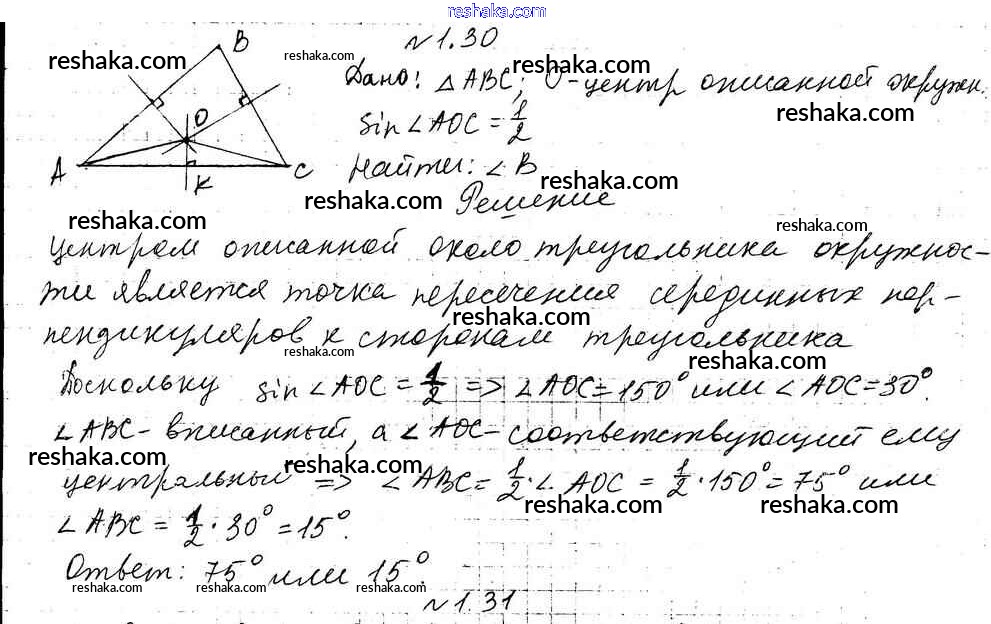 reshaka.com
№1.30
B
reshaka.com
reshaka.com
Дано: △ABC; O-центр описанной окружн.
reshaka.com
reshaka.com
O
sin∠AOC = 1/2
A
K
C
Найти: ∠B
reshaka.com
reshaka.com
reshaka.com
Решение
Центром описанной около треугольника окружнос-
reshaka.com
ти является точка пересечения серединных пер-
reshaka.com
пендикуляров к сторонам треугольника
reshaka.com
reshaka.com
reshaka.com
Поскольку sin∠AOC = 1/2 => ∠AOC = 150° или ∠AOC = 30°.
∠ABC - вписанный, а ∠AOC - соответствующий ему
reshaka.com
reshaka.com
центральный => ∠ABC = 1/2 · ∠AOC = 1/2 · 150° = 75° или
reshaka.com
reshaka.com
∠ABC = 1/2 · 30° = 15°.
Ответ: 75° или 15°.
reshaka.com
reshaka.com
reshaka.com
reshaka.com
№1.31